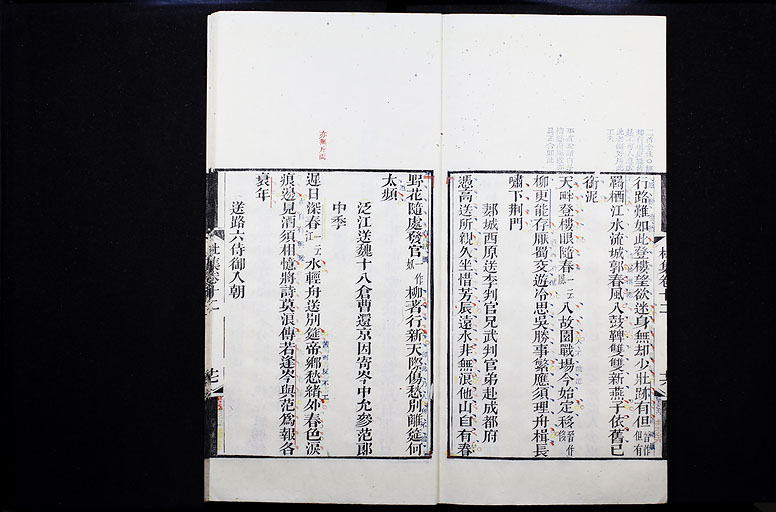 行路難如此登樓望欲迷身無却少壯跡有但晉作但有
羇栖江水流城郭春風入鼓鞞雙雙新燕子依舊已
銜泥
天畔登樓眼隨春一云風入故園戰場今始定移晉作後
柳更能存厭蜀交遊冷思吳勝事繁應須理舟楫長
嘯下荆門
郪城西原送李判官兄武判官弟赴成都府
憑高送所親久坐惜芳辰遠水非無浪他山自有春
野花隨處發官一作妖柳著行新天際傷愁別離筵何
太頻
泛江送魏十八倉曹還京因寄岑中允參范郎
中季
遲日深春一云江水輕舟送別筵帝鄉愁緒外春色淚
痕邊見酒須相憶將詩莫浪傳若逢岑與范爲報各
衰年
送路六侍御入朝
杜集卷十二